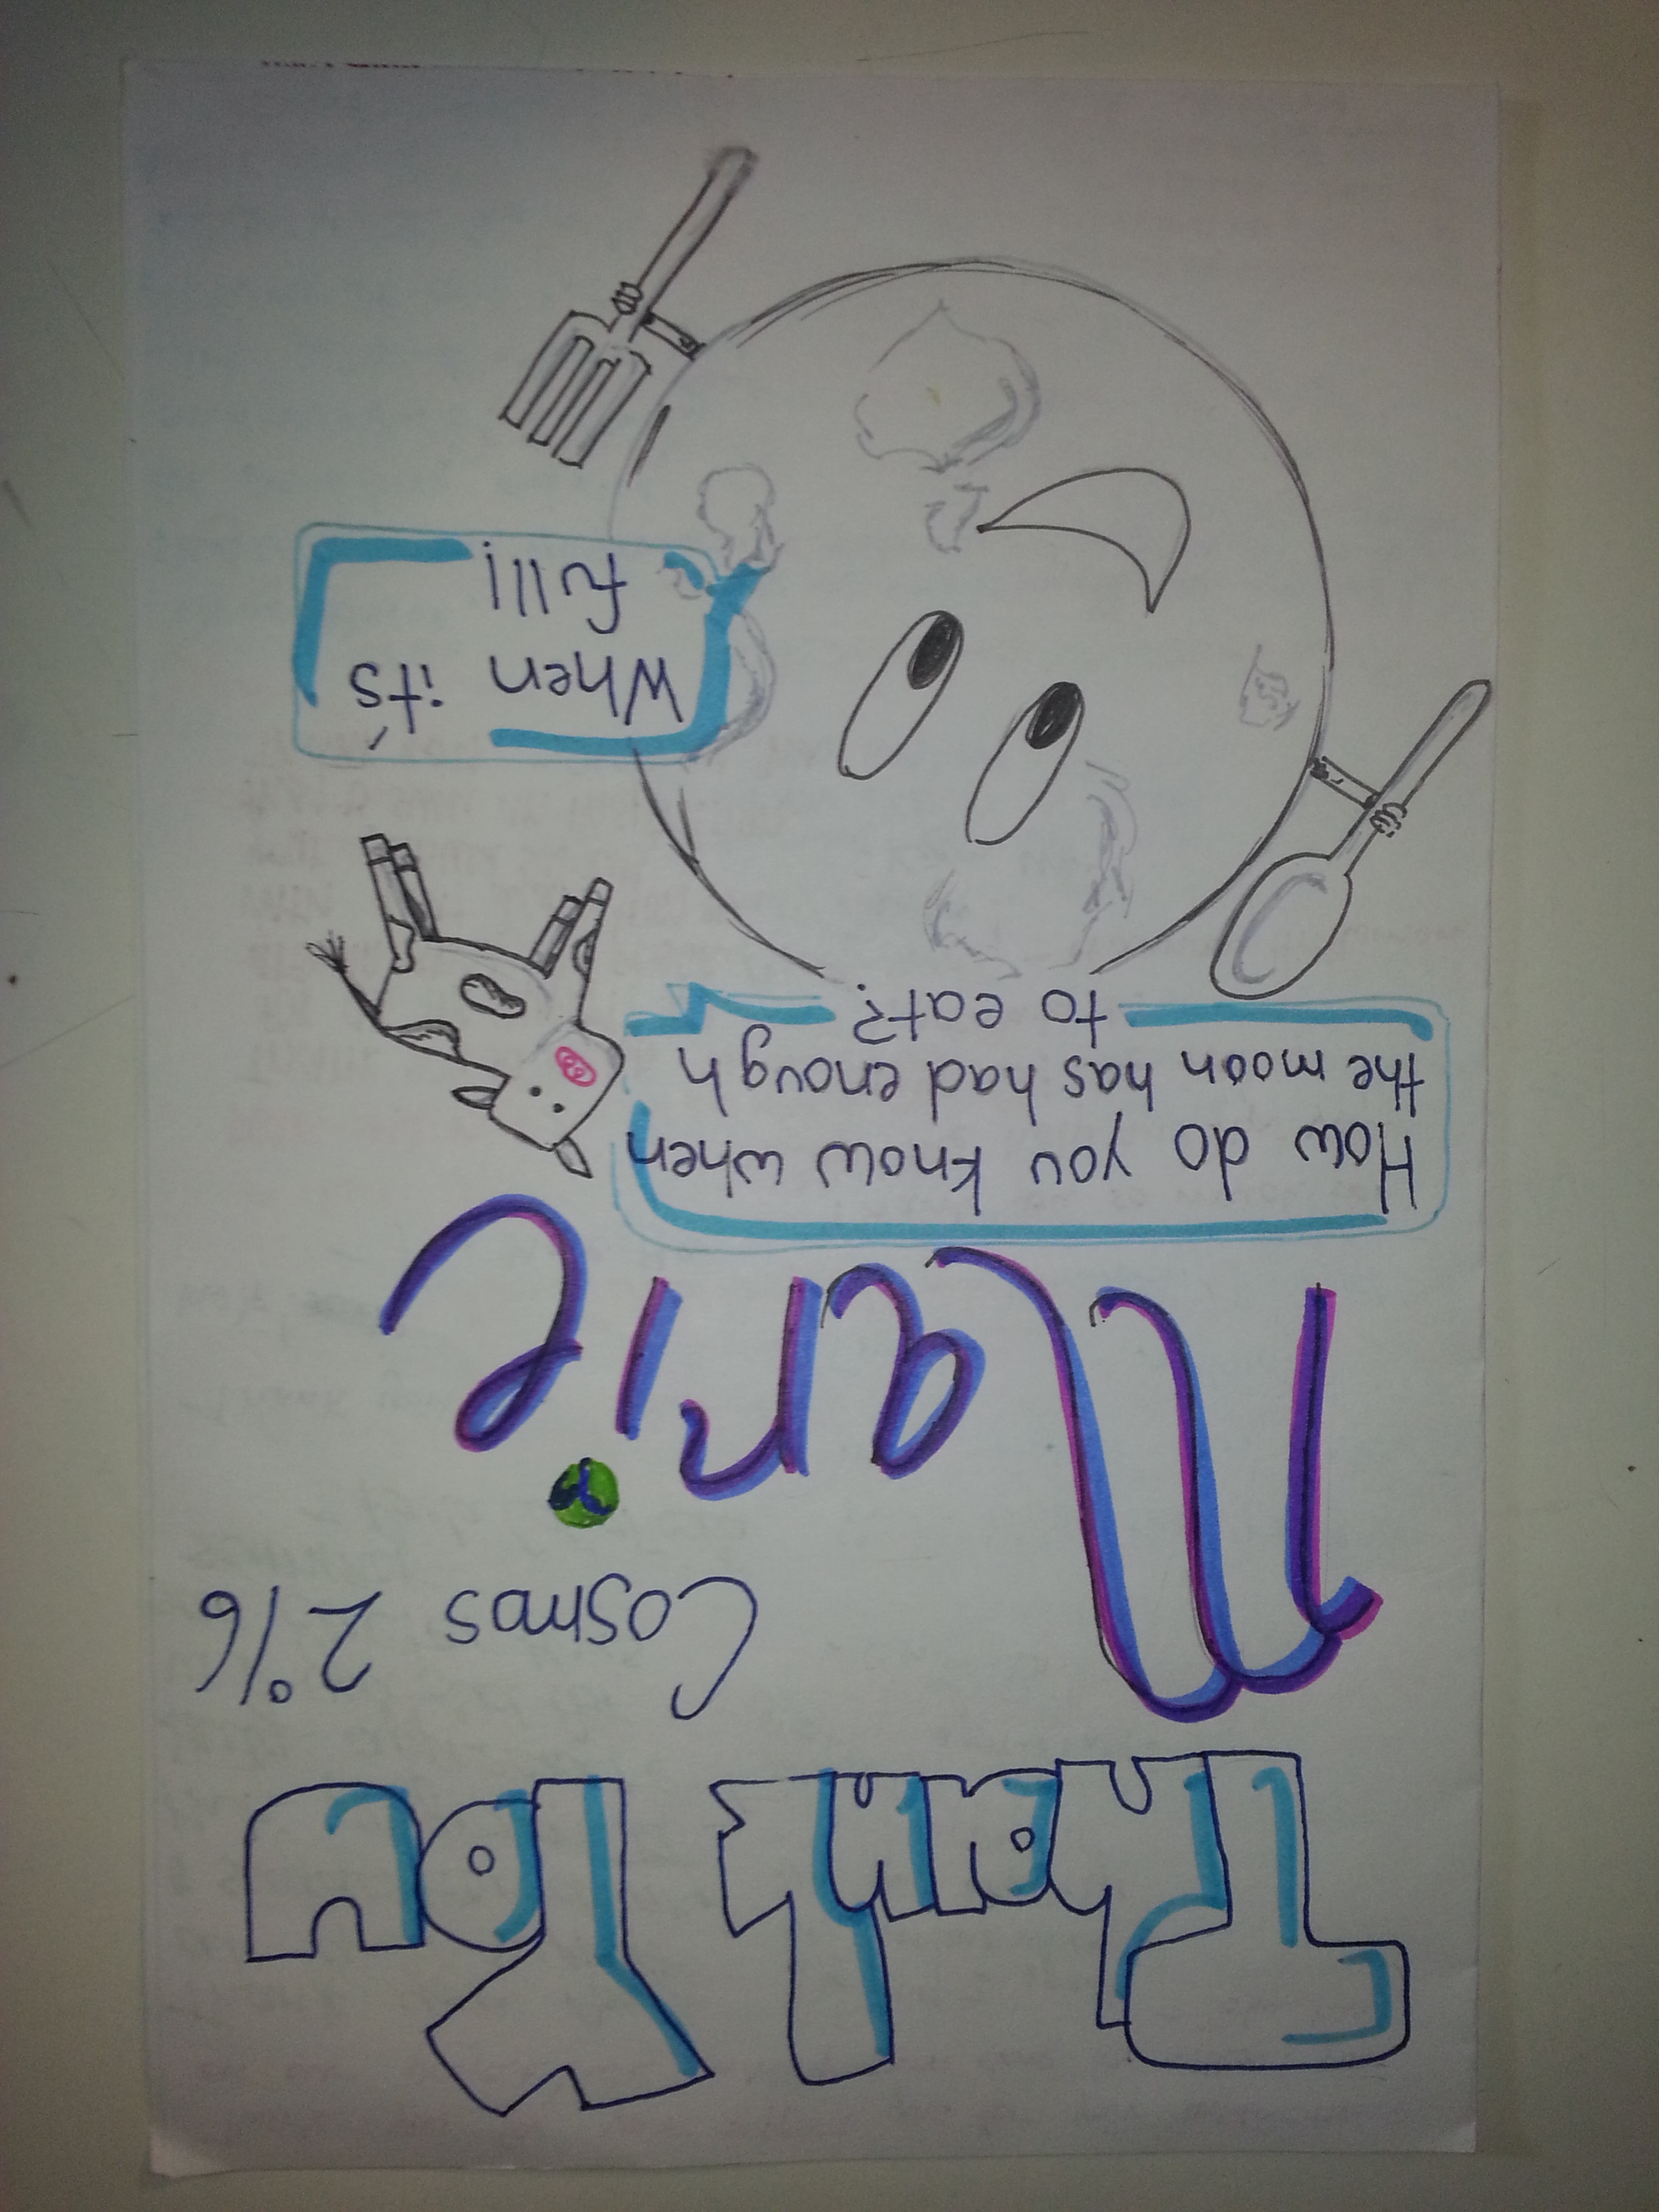 Thank You
Cosmos 2%
Marie
How do you know when
the moon has had enough
to eat?
When it's
full!